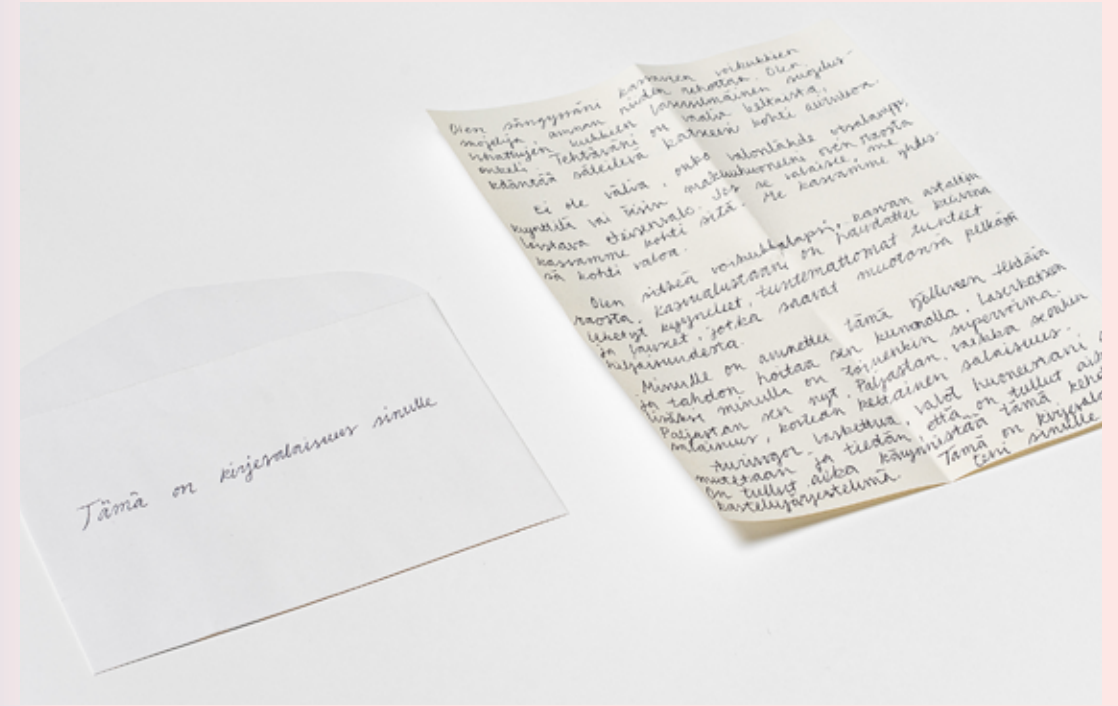 Tämä on kirjesalaisuus sinulle
Olen sängyssäni kasvavien voikukkien
suojelija, annan niiden rehottaa. Olen
uhattujen kukkien lasisilmäinen suojelus-
enkeli. Tehtäväni on vaalia keltaista,
kääntää säteilevä katseeni kohti aurinkoa.
Ei ole väliä, onko valonlähde otsalamppu,
kynttilä vai öisin makuuhuoneeni oven raosta
loistava eteisenvalo. Jos se valaisee, me
kasvamme kohti sitä. Me kasvamme yhdes-
sä kohti valoa.
Olen sitkeä voikukkalapsi, kasvan asfaltin
raosta. Kasvualustaani on haudattu
itketyt kyyneleet, tuntemattomat tunteet
ja lauseet, jotka saavat muotonsa pelkästä
hiljaisuudesta.
Minulle on annettu tämä työlleen tehtävä
ja tahdon hoitaa sen kunnolla. Laserkatseen
lisäksi minulla on toinenkin supervoima.
Paljastan sen nyt. Paljastan, vaikka se onkin
salaisuus, kostean keltainen salaisuus.
Auringon laskettua valot huoneistani
on ja tiedän, että on tullut
On tullut aika käynnistää tämä
kastelujärjestelmä. Tämä on
sinulle